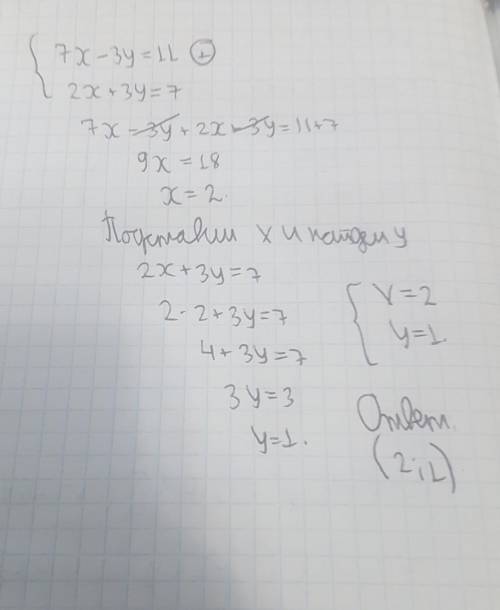 7x-3y=11 (+)
2x+3y=7
7x-3y+2x-3y=11+7
9x=18
x=2.
Подставим x и найдем y
2x+3y=7
2·2+3y=7
4+3y=7
3y=3
y=1.
x=2
y=1.
Ответ
(2;1)